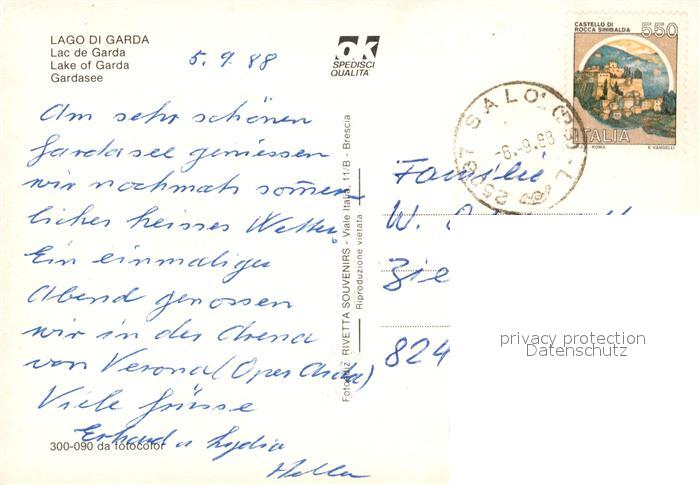 LAGO DI GARDA
Lac de Garda
Lake of Garda
Gardasee
5.9.88
Am sehr schönen
Gardasee geniessen
wir nochmals sommer-
liches heisses Wetter.
Ein einmaliger
Abend genossen
wir in der Arena
von Verona (Oper Aida)
Viele Grüsse
Erhard u Lydia
300-090 da fotocolor
ok
SPEDISCI
QUALITA'
RIVETTA SOUVENIRS - Viale Italia, 11/B - Brescia
Riproduzione vietata
CASTELLO DI
ROCCA SINIBALDA
550
ITALIA
ROMA
E. VANGELLI
25087 SALO' (BS)
-6.-9.88
Familie
W.
Zie
824
privacy protection
Datenschutz